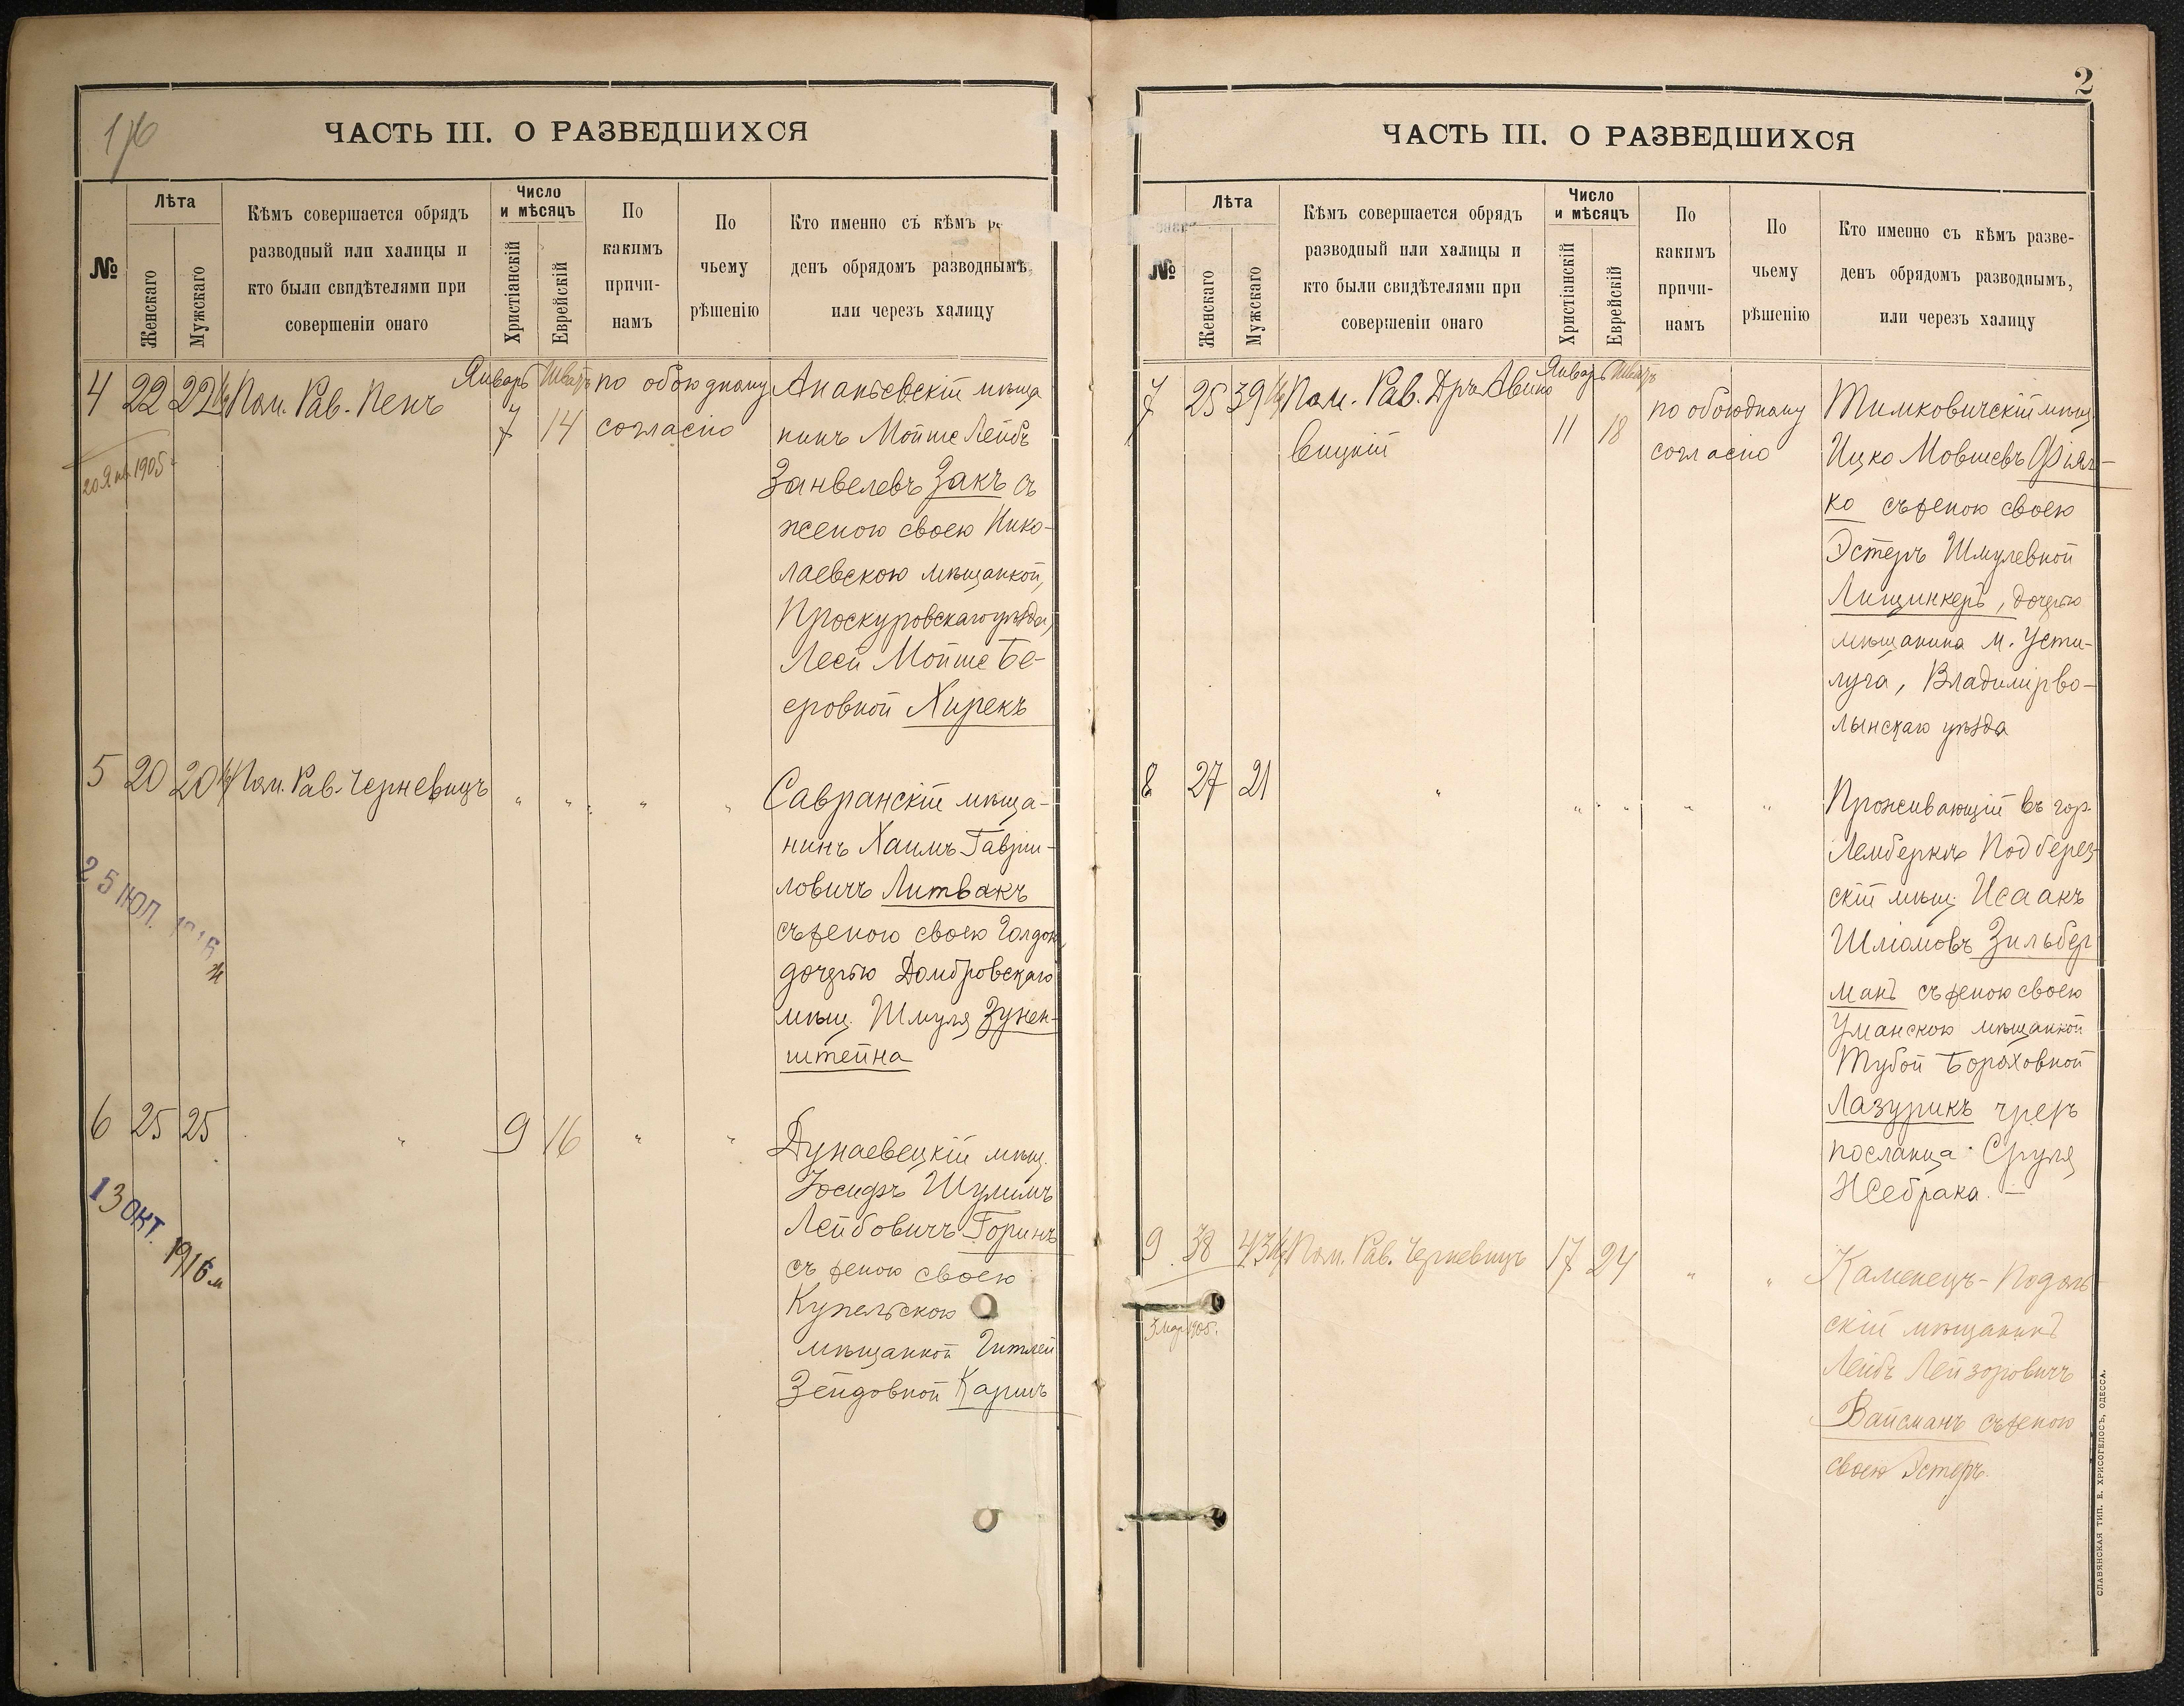 176
ЧАСТЬ III. О РАЗВЕДШИХСЯ
№
Лѣта
Женскаго
Мужскаго
Кѣмъ совершается обрядъ
разводный или халицы и
кто были свидѣтелями при
совершеніи онаго
Число
и мѣсяцъ
Христіанскій
Еврейскій
По
какимъ
причи-
намъ
По
чьему
рѣшенію
Кто именно съ кѣмъ
денъ обрядомъ разводнымъ,
или черезъ халицу
4 22 22 Пом. Рав. Пенъ Январь Шватъ 7 14
по обоюдному
согласію
20 Янв. 1905
Ананьевскій мѣща
нинъ Мойше Лейбъ
Занвелевъ Закъ съ
женою своею Нико-
лаевскою мѣщанкой,
Проскуровскаго уѣзда,
Леей Мойше Бе-
еровной Хирекъ
5 20 20 Пом. Рав. Черневицъ " " " "
25 ІЮЛ. 1916
Савранскій мѣща-
нинъ Хаимъ Гаврии-
ловичъ Литвакъ
съ женою своею Голдою,
дочерью Домбровскаго
мѣщ. Шмуля Зунен-
штейна
6 25 25 " 9 16 " "
13 ОКТ. 1916
Дунаевецкій мѣщ.
Іосифъ Шулимъ
Лейбовичъ Горинъ
съ женою своею
Купельскою
мѣщанкой Гитлей
Зейдовной Каришъ
2
ЧАСТЬ III. О РАЗВЕДШИХСЯ
№
Лѣта
Женскаго
Мужскаго
Кѣмъ совершается обрядъ
разводный или халицы и
кто были свидѣтелями при
совершеніи онаго
Число
и мѣсяцъ
Христіанскій
Еврейскій
По
какимъ
причи-
намъ
По
чьему
рѣшенію
Кто именно съ кѣмъ разве-
денъ обрядомъ разводнымъ,
или черезъ халицу
7 25 39 Пом. Рав. Дръ Авино
вицкій
Январь Шватъ 11 18
по обоюдному
согласію
Тимковичскій мѣщ.
Ицко Мовшевъ Фіял-
ко съ женою своею
Эстеръ Шмулевной
Лищинкеръ, дочерью
мѣщанина м. Усти-
луга, Владимірво-
лынскаго уѣзда
8 27 21 " " " " "
Проживающій въ гор.
Лембергѣ Подберез-
скій мѣщ. Исаакъ
Шліомовъ Зильбер
манъ съ женою своею
Уманскою мѣщанкой
Тубой Бороховной
Лазурикъ чрезъ
посланца Сруля
Жебрака. —
9 38 43 Пом. Рав. Черневицъ 17 24 " "
3 мар. 1905.
Каменецъ-Подоль
скій мѣщанинъ
Лейбъ Лейзоровичъ
Вайсманъ съ женою
своею Эстеръ.
СЛАВЯНСКАЯ ТИП. Е. ХРИСОГЕЛОСЪ, ОДЕССА.